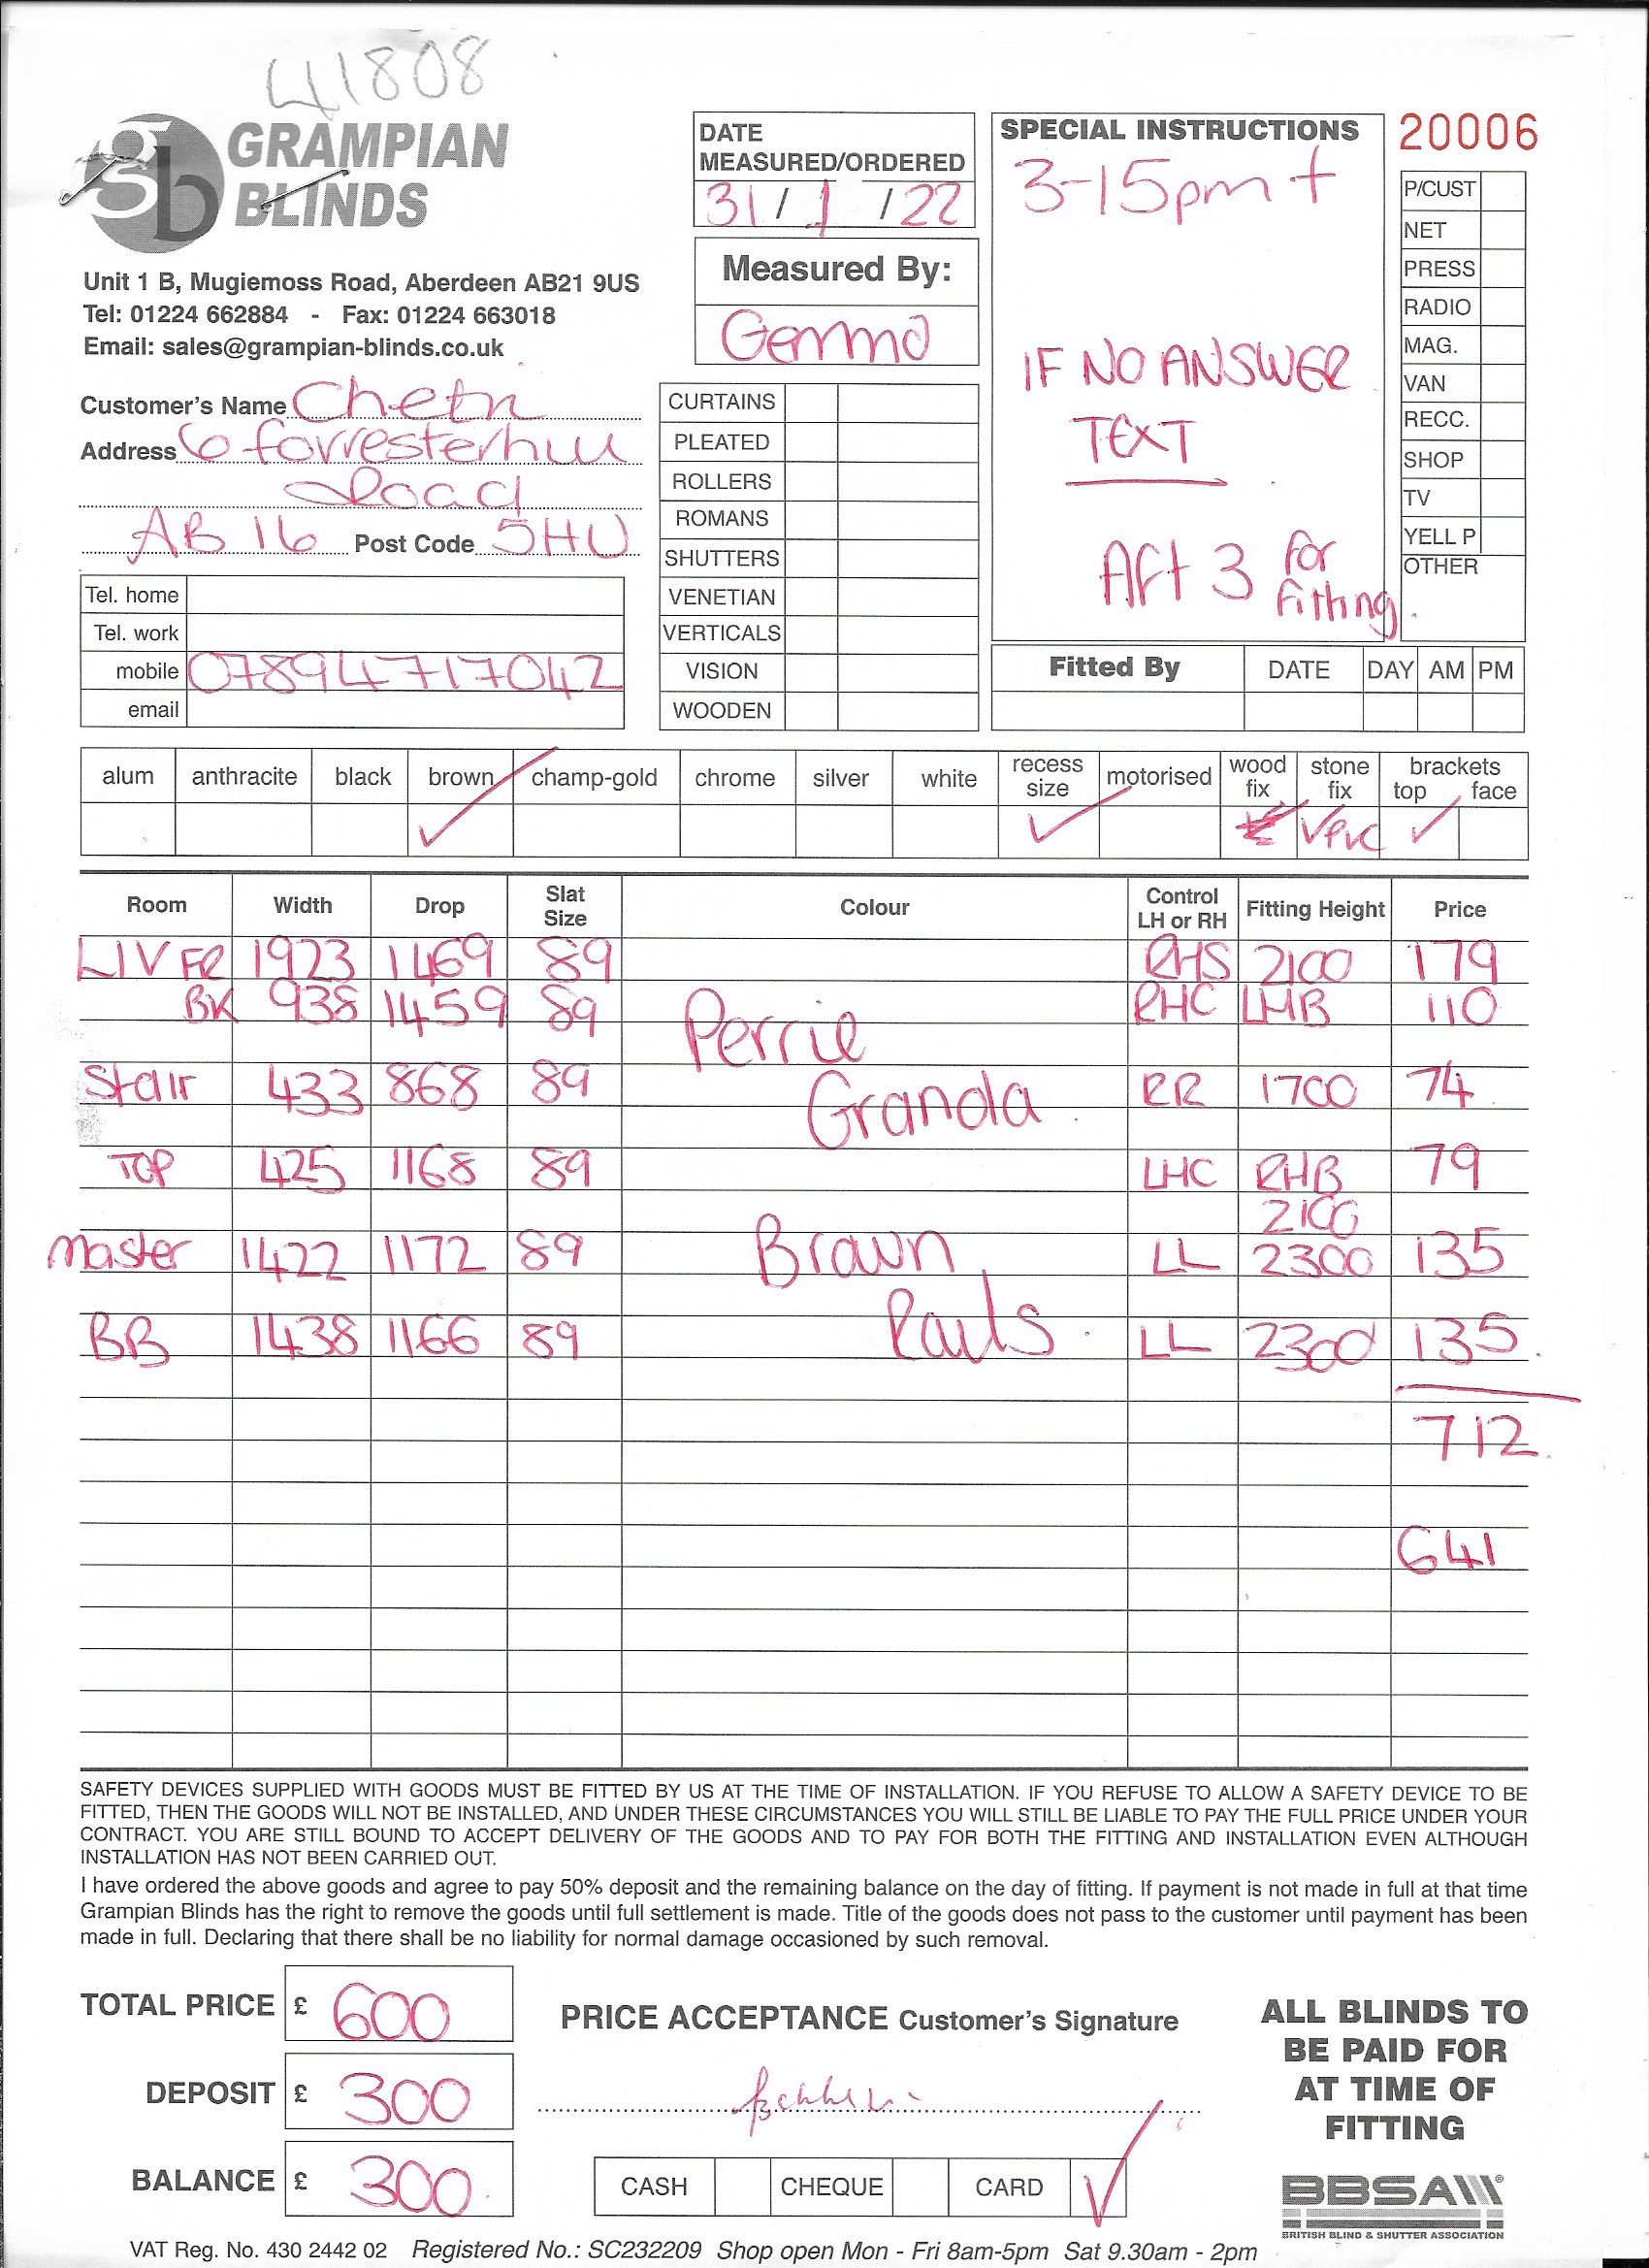 41808
GRAMPIAN
BLINDS
Unit 1 B, Mugiemoss Road, Aberdeen AB21 9US
Tel: 01224 662884 - Fax: 01224 663018
Email: sales@grampian-blinds.co.uk
DATE
MEASURED/ORDERED
31 / 1 / 22
Measured By:
Gemma
SPECIAL INSTRUCTIONS
3-15pm +
IF NO ANSWER
TEXT
Aft 3 for
fitting.
20006
P/CUST
NET
PRESS
RADIO
MAG.
VAN
RECC.
SHOP
TV
YELL P
OTHER
Customer's Name
Address 6 forresterhill
Road
AB 16 Post Code 5HU
Tel. home
Tel. work
mobile 07894717042
email
CURTAINS
PLEATED
ROLLERS
ROMANS
SHUTTERS
VENETIAN
VERTICALS
VISION
WOODEN
Fitted By DATE DAY AM PM
alum anthracite black brown champ-gold chrome silver white recess size motorised wood fix stone fix brackets top face
✓ ✓ ✓
Room Width Drop Slat Size Colour Control LH or RH Fitting Height Price
LIV FR 1923 1469 89 RHS 2100 179
BK 938 1459 89 Perrie RHC LHB 110
Stair 433 868 89 Granola RR 1700 74
TOP 425 1168 89 LHC RHB 79
2100
Master 1422 1172 89 Brown LL 2300 135
BB 1438 1166 89 Rails. LL 2300 135.
712.
641
SAFETY DEVICES SUPPLIED WITH GOODS MUST BE FITTED BY US AT THE TIME OF INSTALLATION. IF YOU REFUSE TO ALLOW A SAFETY DEVICE TO BE
FITTED, THEN THE GOODS WILL NOT BE INSTALLED, AND UNDER THESE CIRCUMSTANCES YOU WILL STILL BE LIABLE TO PAY THE FULL PRICE UNDER YOUR
CONTRACT. YOU ARE STILL BOUND TO ACCEPT DELIVERY OF THE GOODS AND TO PAY FOR BOTH THE FITTING AND INSTALLATION EVEN ALTHOUGH
INSTALLATION HAS NOT BEEN CARRIED OUT.
I have ordered the above goods and agree to pay 50% deposit and the remaining balance on the day of fitting. If payment is not made in full at that time
Grampian Blinds has the right to remove the goods until full settlement is made. Title of the goods does not pass to the customer until payment has been
made in full. Declaring that there shall be no liability for normal damage occasioned by such removal.
TOTAL PRICE £ 600
DEPOSIT £ 300
BALANCE £ 300.
PRICE ACCEPTANCE Customer's Signature
CASH CHEQUE CARD ✓
ALL BLINDS TO
BE PAID FOR
AT TIME OF
FITTING
BBSA
BRITISH BLIND & SHUTTER ASSOCIATION
VAT Reg. No. 430 2442 02 Registered No.: SC232209 Shop open Mon - Fri 8am-5pm Sat 9.30am - 2pm